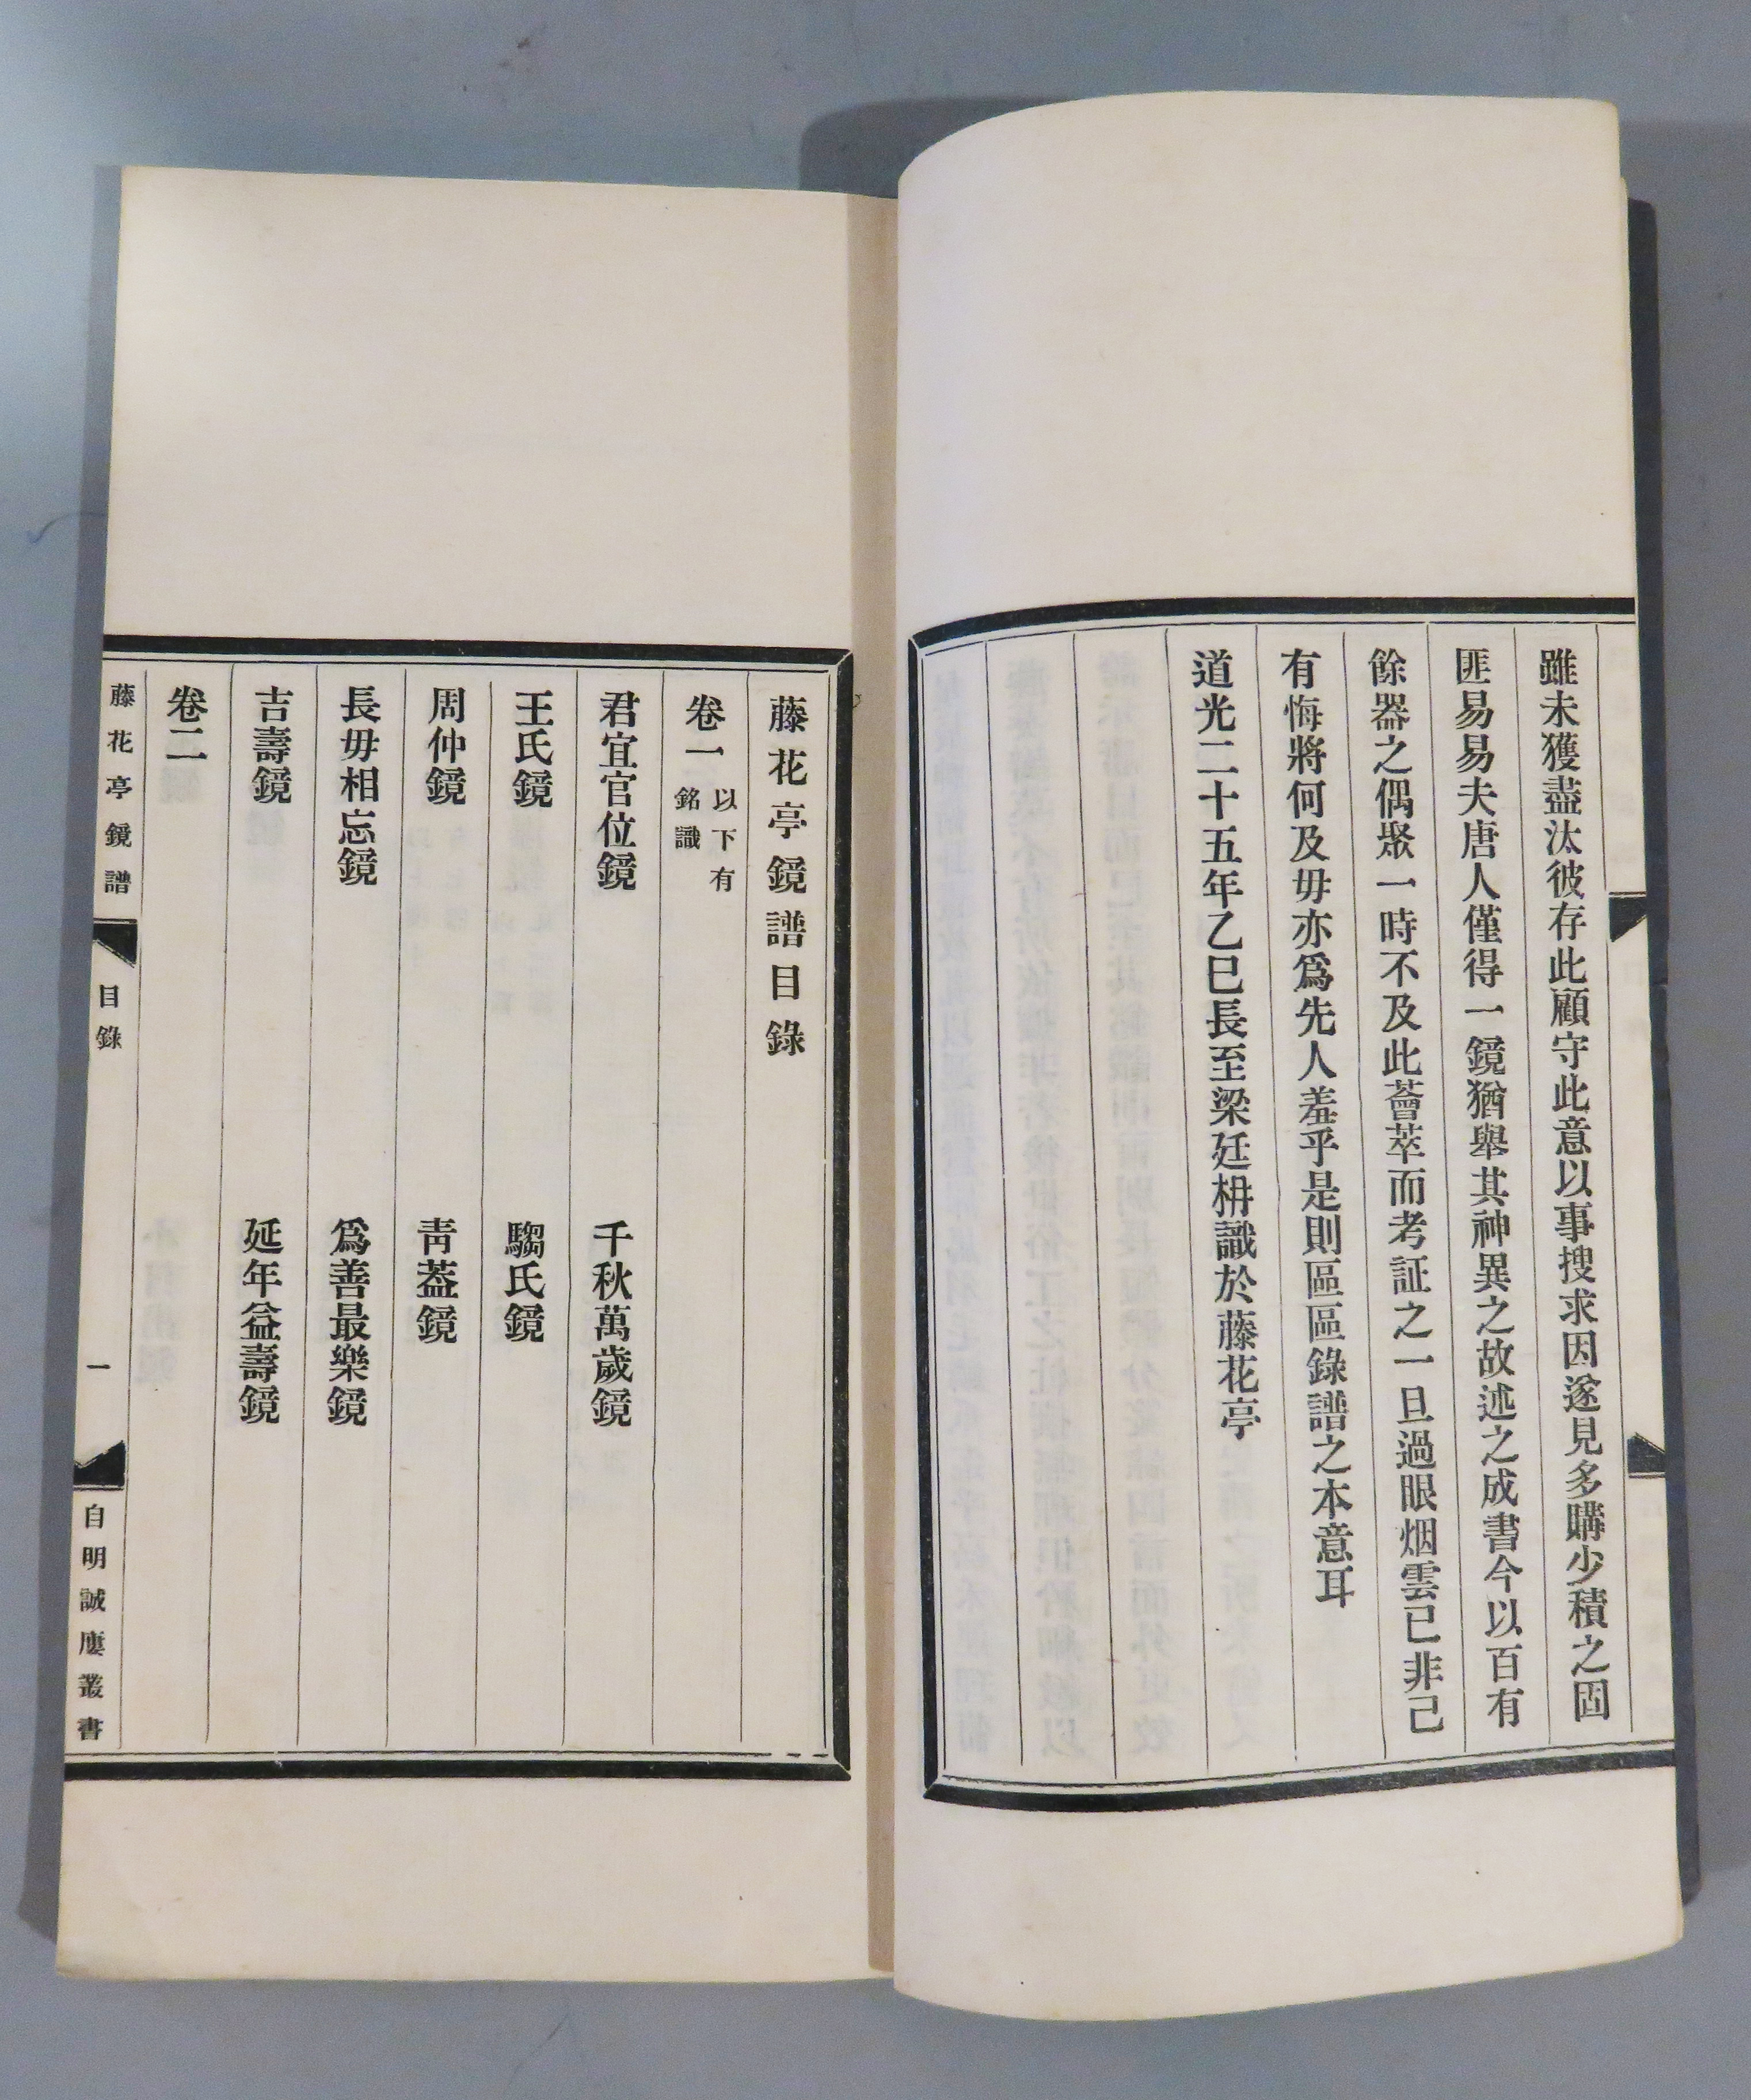 雖未獲盡汰彼存此顧守此意以事搜求因遂見多購少積之固
匪易易夫唐人僅得一鏡猶舉其神異之故述之成書今以百有
餘器之偶聚一時不及此薈萃而考証之一旦過眼烟雲已非己
有悔將何及毋亦爲先人羞乎是則區區錄譜之本意耳
道光二十五年乙巳長至梁廷枏識於藤花亭
藤花亭鏡譜目錄
卷一 以下有銘識
君宜官位鏡 千秋萬歲鏡
王氏鏡 騶氏鏡
周仲鏡 靑葢鏡
長毋相忘鏡 爲善最樂鏡
吉壽鏡 延年益壽鏡
卷二
藤花亭鏡譜 目錄 一 自明誠廔叢書